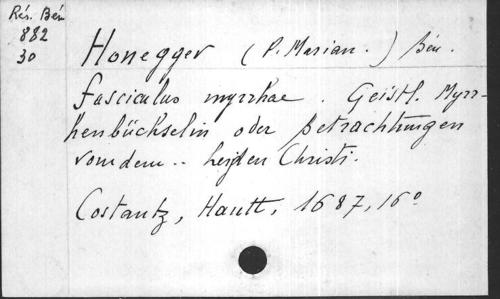 Rés. Bén
882
30
Honegger (P. Marian.) Bén.
Fasciculus myrrhae. Geistl. Myrr-
henbückselin oder Betrachtungen
vom dem .. Christi.
Costantz, Hautt, 1687, 16°